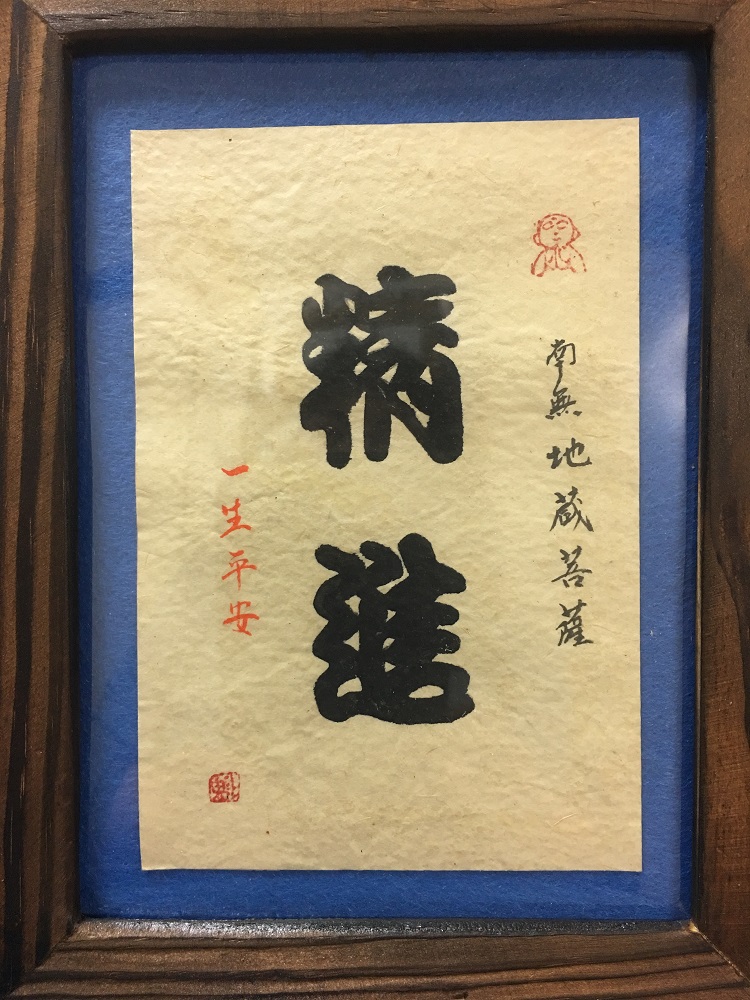 南無地蔵菩薩
精進
一生平安